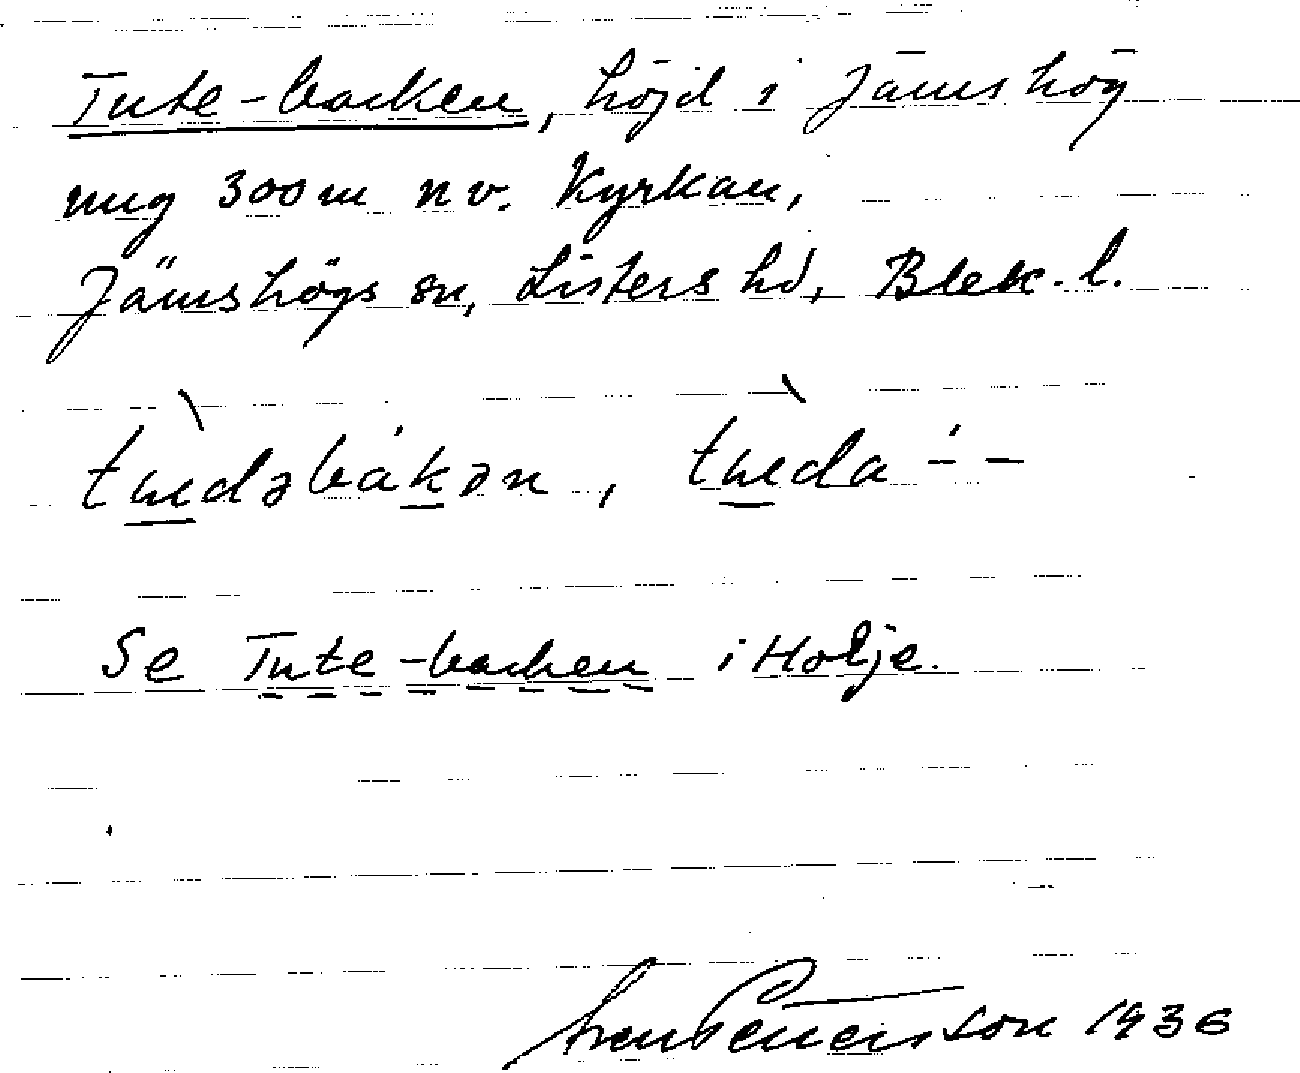 Tute-backen, höjd i Jämshög
ung 300 m nv. Kyrkan,
Jämshögs sn, Listers hd, Blek. l.
tuedəbakən, tueda - -
Se Tute-backen i Holje.
Sven Pettersson 1936